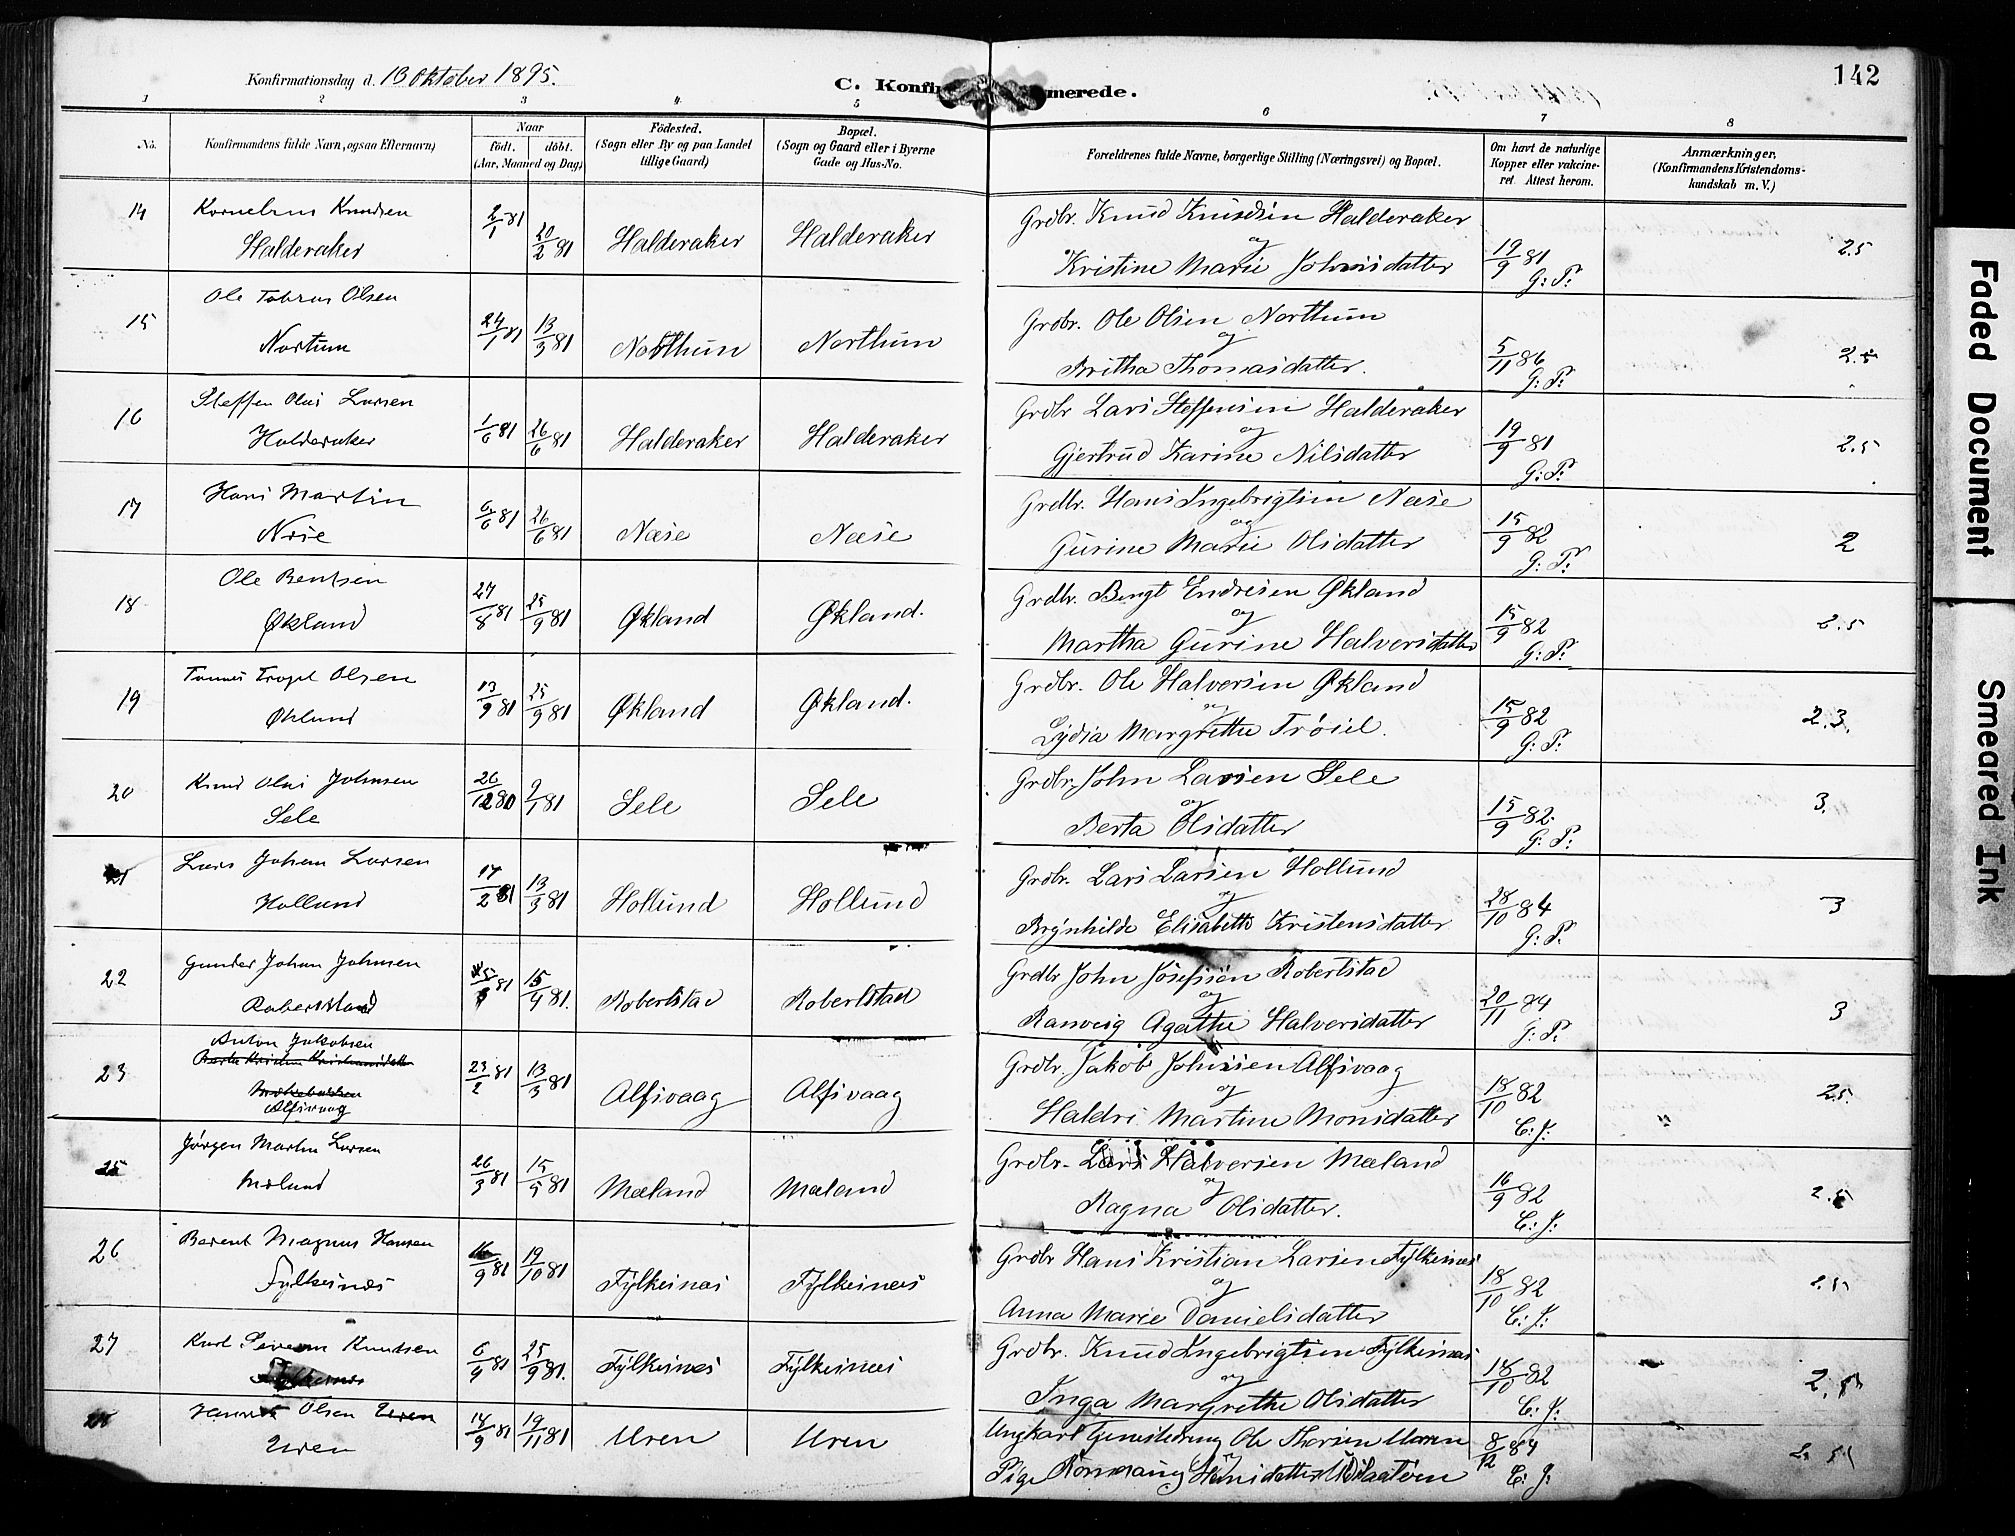 Konfirmationsdag d. 13 Oktober 1895.
C. Konfir merede.
142
1 2 3 4 5 6 7 8
No.
Konfirmandens fulde Navn, ogsaa Efternavn)
Naar
födt. döbt.
(Aar, Maaned og Dag)
Födested.
(Sogn eller By og paa Landet
tillige Gaard)
Bopæl.
(Sogn og Gaard eller i Byerne
Gade og Hus-No.
Forældrenes fulde Navne, borgerlige Stilling (Næringsvei) og Bopæl.
Om havt de naturlige
Kopper eller vakcine-
ret. Attest herom.
Anmærkninger.
(Konfirmandens Kristendoms-
kundskab m. V.)
14 Kornelius Knudsen
Halderaker
2/1 81 20/2 81 Halderaker Halderaker
Grdbr. Knud Knudsen Halderaker
og
Kristine Marie Johnsdatter
19/9 81
G: P:
2.5
15 Ole Tobias Olsen
Nortum
24/1 81 13/3 81 Northum Northum
Grdbr. Ole Olsen Northum
og
Britha Thomasdatter.
5/11 86
G: P:
2.5
16 Steffen Olai Larsen
Halderaker
1/6 81 26/6 81 Halderaker Halderaker
Grdbr Lars Steffensen Halderaker
og
Gjertrud Karine Nilsdatter
19/9 81
G: P:
2.5
17 Hans Martin
Næse
6/6 81 26/6 81 Næse Næse
Grdbr. Hans Ingebrigtsen Næse
og
Gurine Marie Olsdatter
15/9 82
G: P:
2
18 Ole Bentsen
Økland
27/8 81 25/9 81 Økland Økland.
Grdbr. Bengt Endresen Økland
og
Martha Gurine Halversdatter
15/9 82
G: P:
2.5
19 Olsen
Økland
13/9 81 25/9 81 Økland Økland.
Grdbr. Ole Halversen Økland
og
Lydia Margrethe Trøiel.
15/9 82
G: P:
2.3.
20 Knud Olai Johnsen
Sele
26/12 80 2/1 81 Sele Sele
Grdbr. John Larsen Sele
og
Berta Olsdatter
15/9 82.
G: P:
3.
21 Lars Johan Larsen
Hollund
17/2 81 13/3 81 Hollund Hollund
Grdbr. Lars Larsen Hollund
og
Brynhilde Elisabeth Kristensdatter
28/10 84
G: P:
3
22 Gunder Johan Johnsen
Robertstad
81 15/4 81. Robertstad Robertstad
Grdbr John Josefsen Robertstad
og
Ranveig Agathe Halversdatter
20/11 84
G: P:
3
23 Anton Jakobsen
Alfsvaag
23/2 81 13/3 81 Alfsvaag Alfsvaag
Grdbr. Jakob Johnsen Alfsvaag
og
Haldri Martine Monsdatter
18/10 82
C: J:
2.5.
25 Jørgen Martin Larsen
Mæland
26/3 81 15/5 81 Mæland Mæland
Grdbr. Lars Halversen Mæland
og
Ragna Olsdatter.
16/9 82
C: J:
2.5
26 Berent Magnus Hansen
Fylkesnæs
16/9 81 19/10 81 Fylkesnæs Fylkesnæs
Grdbr Hans Kristian Larsen Fylkesnæs
og
Anna Marie Danielsdatter
18/10 82
C: J:
2.5
27 Karl Severin Knutsen
Fylkesnæs
6/9 81 25/9 81. Fylkesnæs Fylkesnæs
Grdbr. Knud Ingebrigtsen Fylkesnæs
og
Inga Margrethe Olsdatter
18/10 82
C: J:
2.5
Olsen Uren
Uren
14/9 81 19/11 81 Uren Uren
Ungkarl Ole Thorsen Uren
og
Pige Hansdatter
8/12 84
C: J:
2.5
Faded Document
Smeared Ink